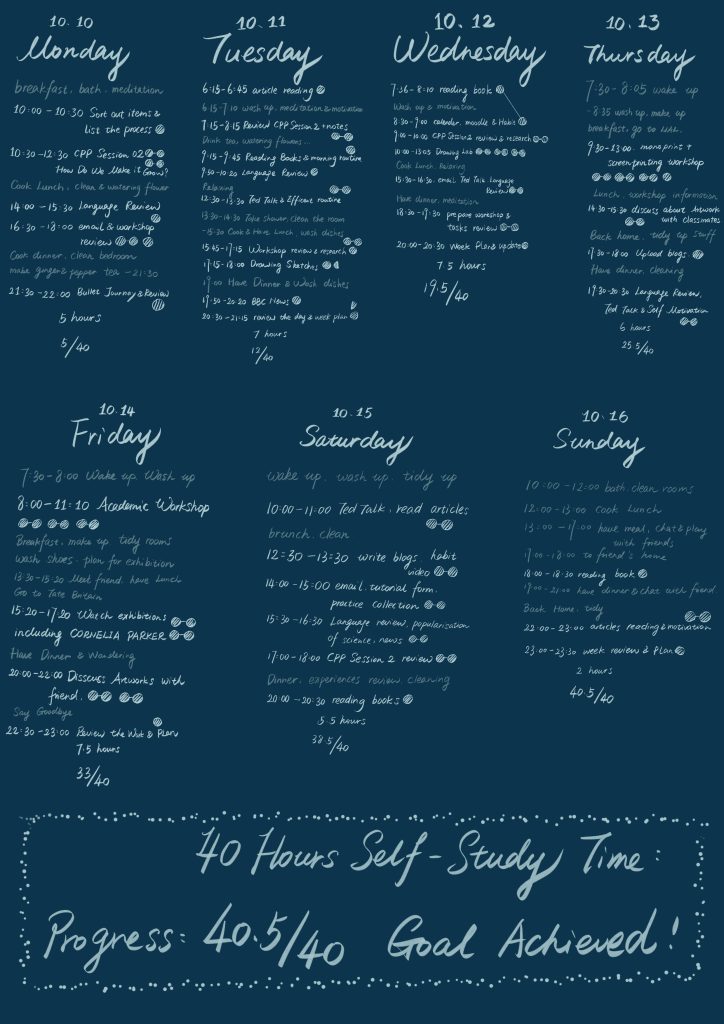 10.10
Monday
breakfast. bath. meditation
10:00 - 10:30 Sort out items &
list the process
10:30 - 12:30 CPP Session 02
How Do We Make it Grow?
Cook Lunch, clean & watering flower
14:00 - 15:30 Language Review
16:30 - 18:00 email & workshop
review
Cook dinner. clean bedroom
make ginger & pepper tea - 21:30
21:30 - 22:00 Bullet Journey & Review
5 hours
5/40
10.11
Tuesday
6:15 - 6:45 article reading
6:15 - 7:10 wash up. meditation & motivation
7:15 - 8:15 Review CPP Session 2 + notes
Drink tea, watering flowers...
9:15 - 9:45 Reading Books & morning routine
9:50 - 10:20 Language Review
Relaxing
12:30 - 13:30 Ted Talk & Efficent routine
13:30 - 14:30 Take shower. clean the room
- 15:30 Cook & Have Lunch, wash dishes
15:45 - 17:15 Workshop review & research
17:15 - 18:00 Drawing Sketches
19:00 Have Dinner & Wash dishes
19:50 - 20:20 BBC News
20:30 - 21:15 review the day & week plan
7 hours
12/40
10.12
Wednesday
7:36 - 8:10 reading book
Wash up & motivation
8:30 - 9:00 calender. moodle & Habit
9:00 - 10:00 CPP Session 2 review & research
10:00 - 13:05 Drawing Lab
Cook Lunch Relaxing
15:30 - 16:30. email, Ted Talk. Language
Review
Have dinner, meditation
18:30 - 19:30 prepare workshop &
tasks review
20:00 - 20:30 Week Plan & update
7.5 hours
19.5/40
10.13
Thursday
7:30 - 8:05 wake up
- 8:35 wash up, make up
breakfast, go to UAL.
9:30 - 13:00. monoprint +
screenprinting workshop
Lunch, workshop information
14:30 - 15:30 discuss about Artwork
with classmates
Back home. tidy up stuff
17:30 - 18:00 Upload blogs.
Have dinner, cleaning
19:30 - 20:30 Language Review.
Ted Talk & Self Motivation
6 hours
25.5/40
10.14
Friday
7:30 - 8:00 Wake up. Wash up
8:00 - 11:10 Academic Workshop
Breakfast, make up tidy rooms
wash shoes. plan for exhibition
13:30 - 15:20 Meet friend. have Lunch
Go to Tate Britain
15:20 - 17:20 Watch exhibitions
including CORNELIA PARKER
Have Dinner & Wandering
20:00 - 22:00 Disscuss Artworks with
friend.
Say Goodbye
22:30 - 23:00 Review the Work & Plan
7.5 hours
33/40
10.15
Saturday
wake up. wash up. tidy up
10:00 - 11:00 Ted Talk, read articles
brunch. clean
12:30 - 13:30 write blogs habit
video
14:00 - 15:00 email. tutorial form.
practice collection
15:30 - 16:30 Language review, popularization
of science, news
17:00 - 18:00 CPP Session 2 review
Dinner, experiences review. cleaning
20:00 - 20:30 reading books
5.5 hours
38.5/40
10.16
Sunday
10:00 - 12:00 bath. clean rooms
12:00 - 13:00 Cook Lunch
13:00 - 17:00 have meal, chat & play
with friends
17:00 - 18:00 to friend's home
18:00 - 18:30 reading book
19:00 - 21:00 have dinner & chat with friend
Back Home. tidy
22:00 - 23:00 articles reading & motivation
23:00 - 23:30 week review & Plan
2 hours
40.5/40
40 Hours Self-Study Time:
Progress: 40.5/40 Goal Achieved!